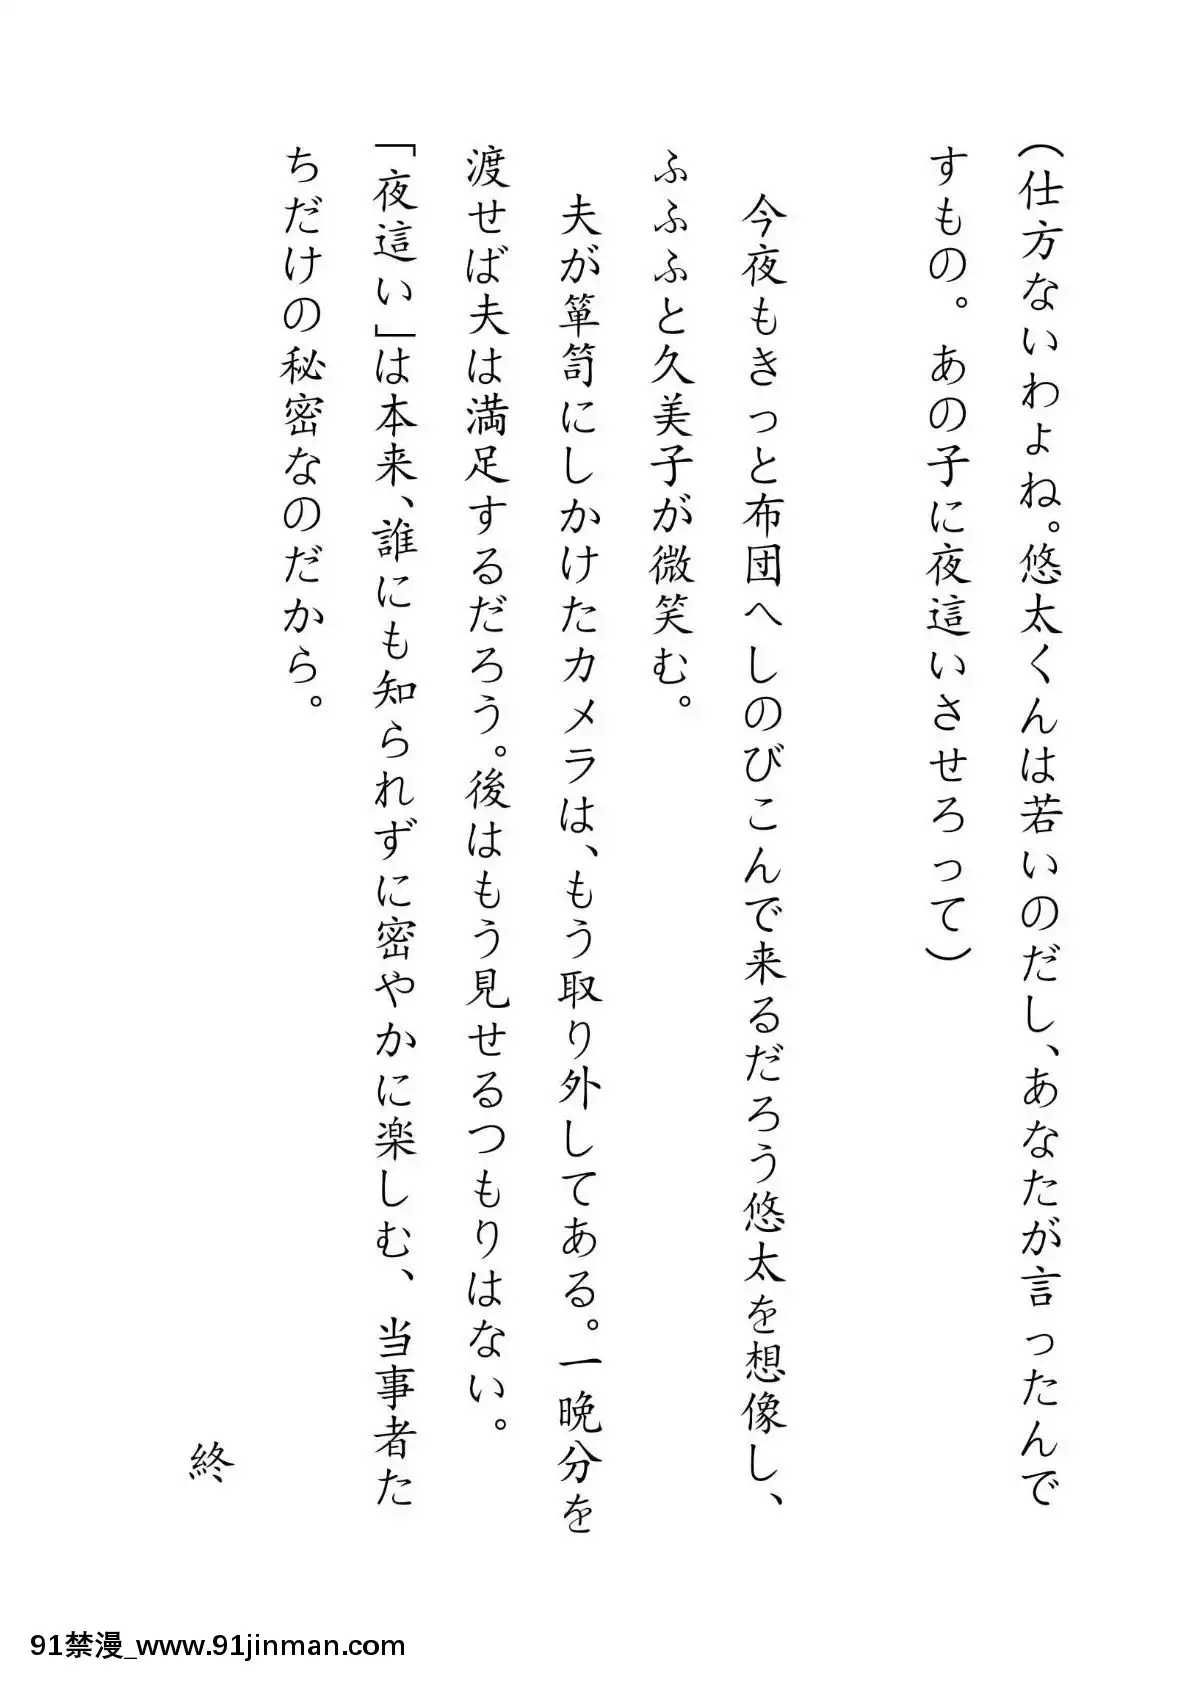 (仕方ないわよね。悠太くんは若いのだし、あなたが言ったんで
すもの。あの子に夜這いさせろって)
今夜もきっと布団へしのびこんで来るだろう悠太を想像し、
ふふふと久美子が微笑む。
夫が箪笥にしかけたカメラは、もう取り外してある。一晩分を
渡せば夫は満足するだろう。後はもう見せるつもりはない。
「夜這い」は本来、誰にも知られずに密やかに楽しむ、当事者た
ちだけの秘密なのだから。
終
91禁漫_www.91jinman.com